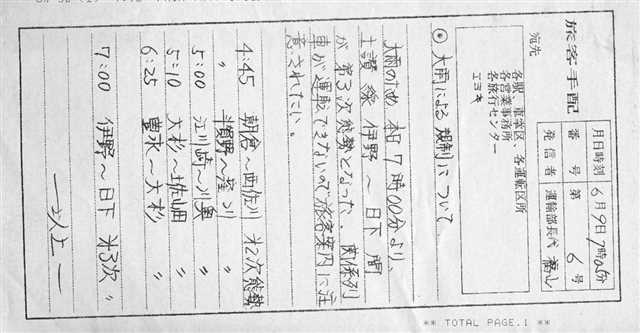 旅客手配
月日時刻 6月9日7時05分
番号 第 6号
発信者 運輸部長代
宛先
各駅 車掌区 各運転区所
各営業事務所
各旅行センター
エヨキ
◎大雨による規制について
大雨のため 本日7時00分より、
土讃線 伊野〜日下間
が第3次態勢となった。関係列
車が運転できないので旅客案内に注
意されたい。
4:45 朝倉〜西佐川 第2次態勢
〃 斗賀野〜窪川 〃
5:00 江川崎〜川奥 〃
5:10 大杉〜土佐山田 〃
6:25 豊永〜大杉 〃
7:00 伊野〜日下 第3次 〃
―以上―
** TOTAL PAGE.1 **